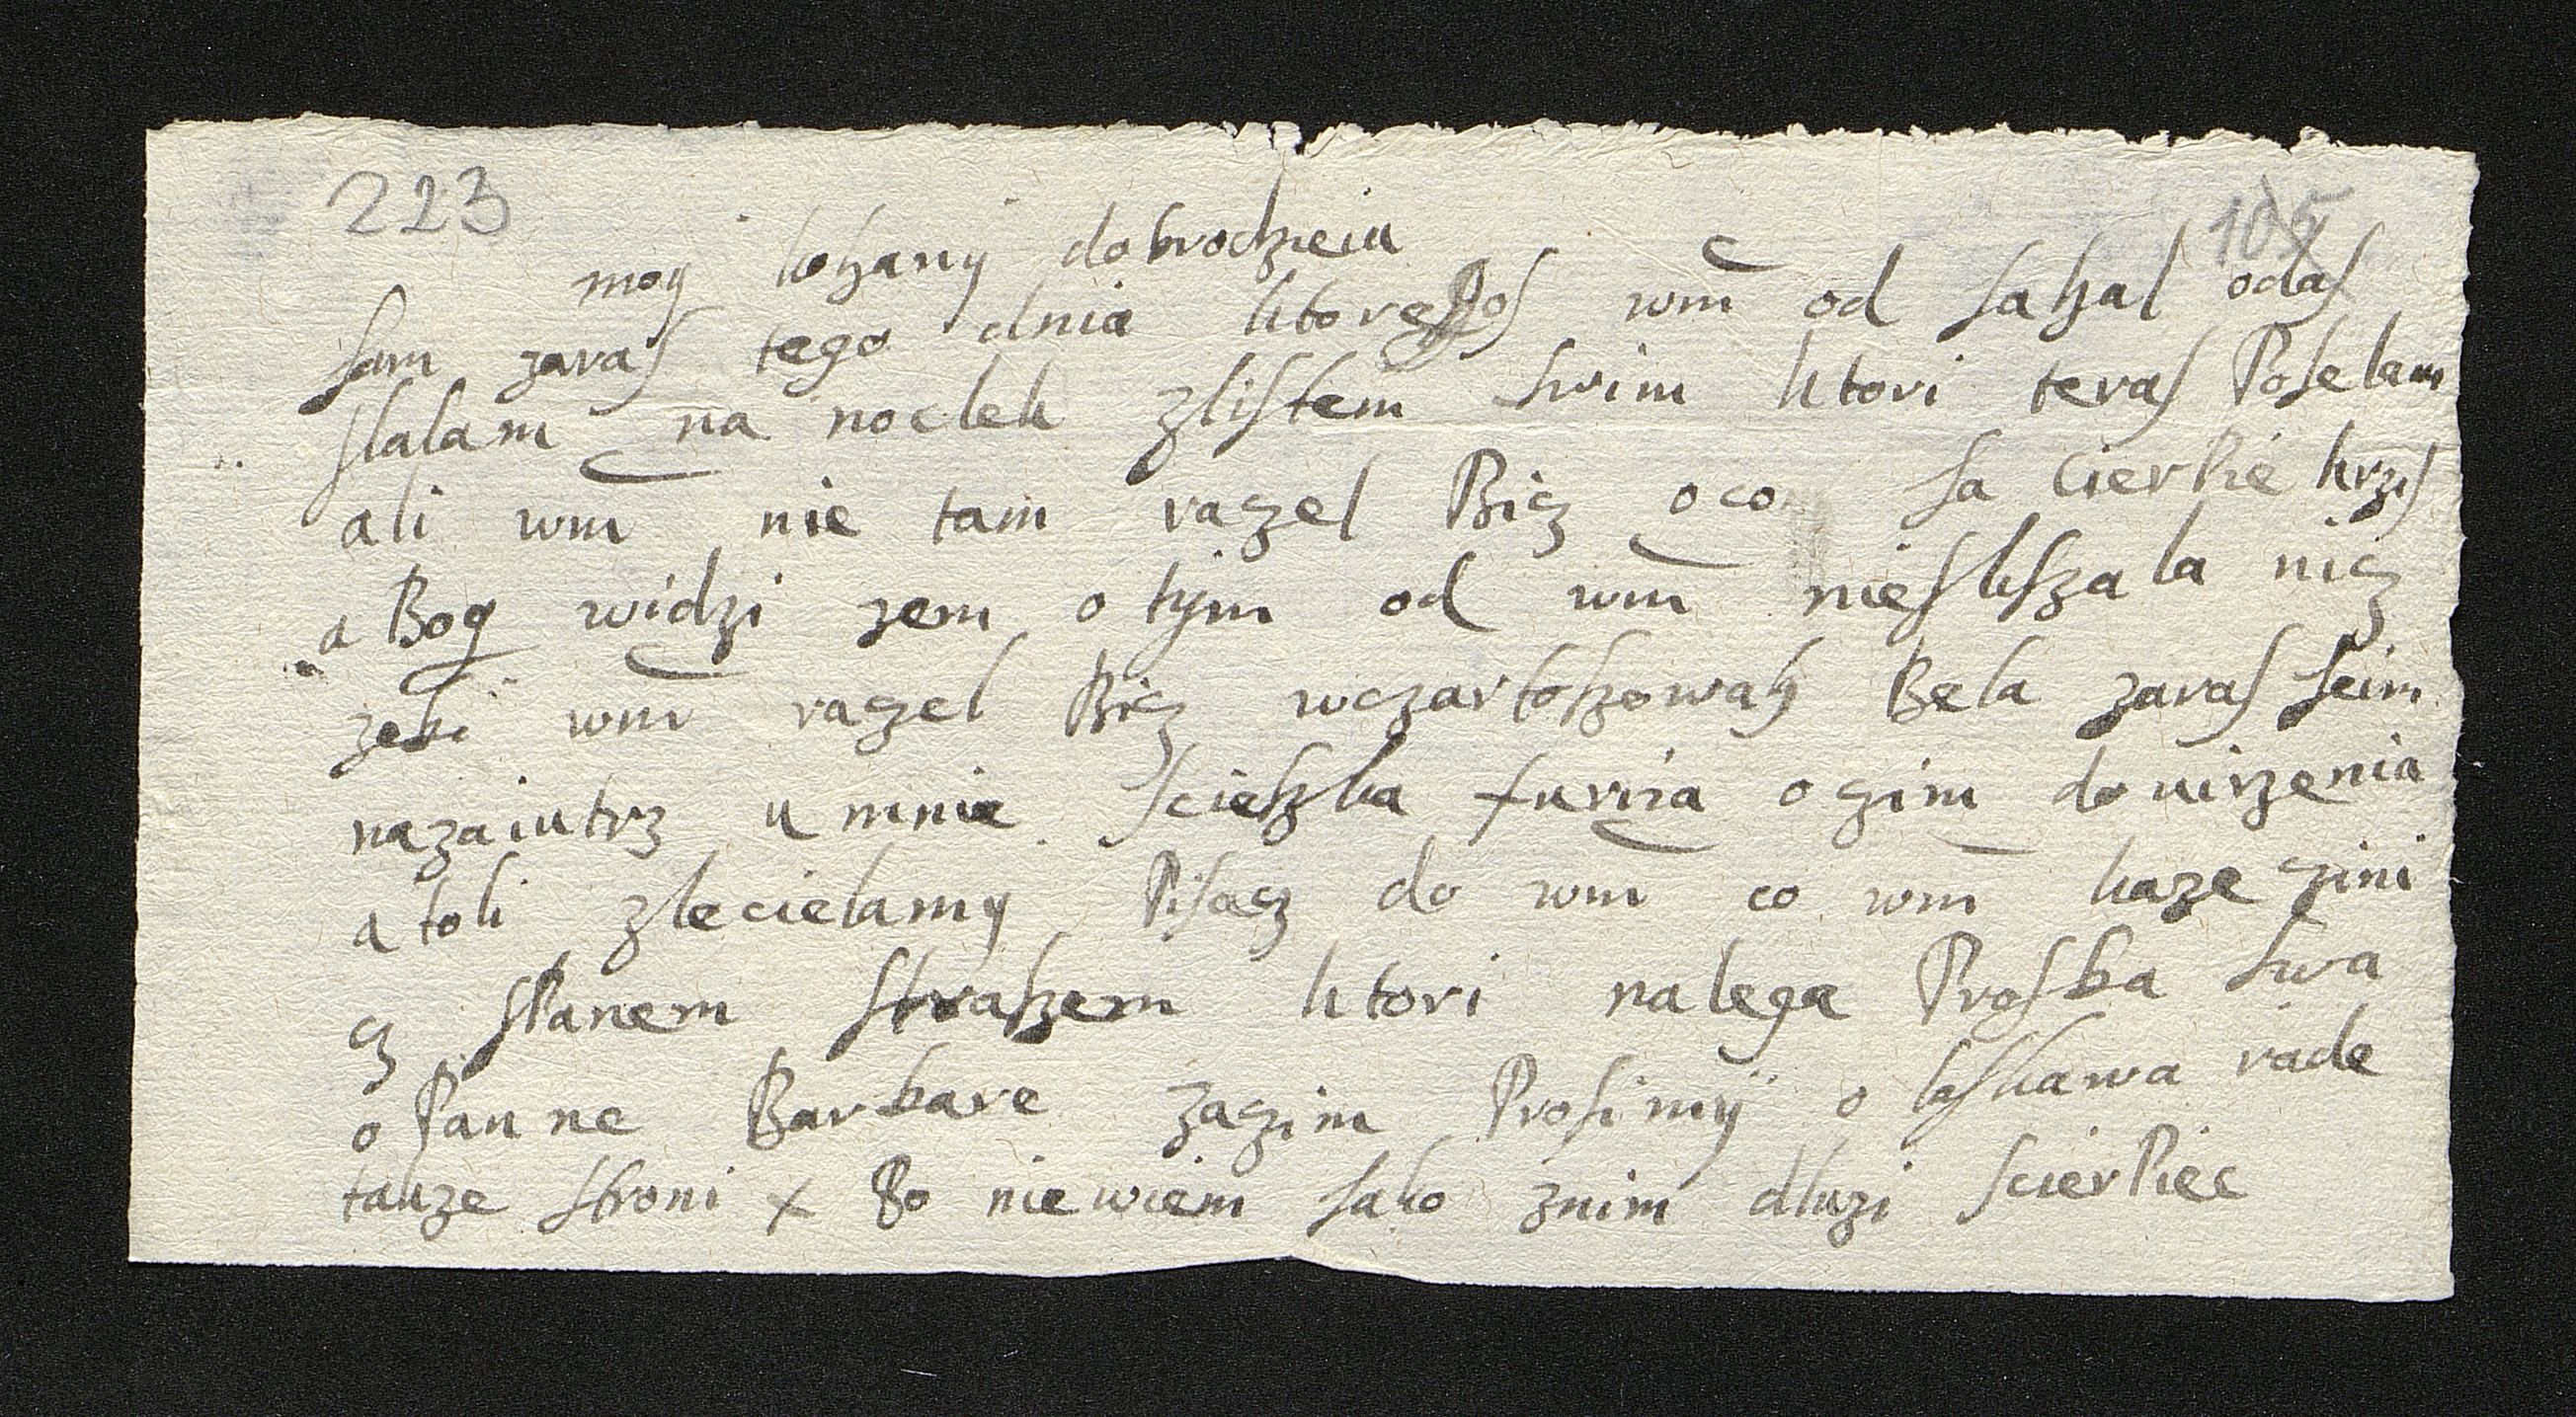 223
105
moÿ kohanÿ dobrodzieiu
sam zaras tego dnia ktoregos wm̃ od iahal odas
slalam na noclek zlistem swim ktori teras Poselam
ali wm̃ nie tam raczel Bicz oco ia cierPie krzis
a Bog widzi zem o tÿm od wm̃ nieslszala nicz
zebi wm̃ raczel Bicz wczartoszowah Bela zaras seim
nazaiutrz u mnie scieszka furiia oczim dowirzenia
atoli zlecielamÿ Pisacz do wm̃ co wm̃ kaze czini
cz sPanem strazem ktori nalega Prosba swa
o Panne Barbare zaczim Prosimÿ o laskawa rade
takze stroni x Bo niewiem iako znim dluzi scierPiec